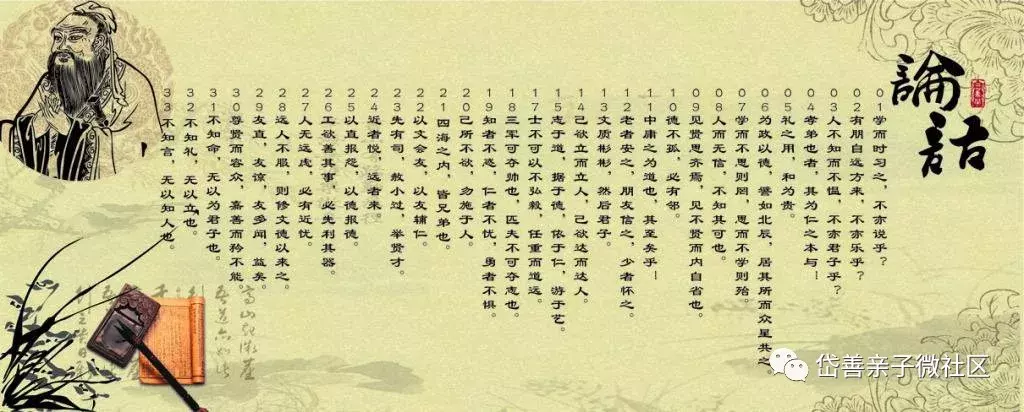 論語
01学而时习之，不亦说乎？
02有朋自远方来，不亦乐乎？
03人不知而不愠，不亦君子乎？
04孝弟也者，其为仁之本与！
05礼之用，和为贵。
06为政以德，譬如北辰，居其所而众星共之
07学而不思则罔，思而不学则殆。
08人而无信，不知其可也。
09见贤思齐焉，见不贤而内自省也。
10德不孤，必有邻。
11中庸之为道也，其至矣乎！
12老者安之，朋友信之，少者怀之。
13文质彬彬，然后君子。
14己欲立而立人，己欲达而达人。
15志于道，据于德，依于仁，游于艺。
17士不可以不弘毅，任重而道远。
18三军可夺帅也，匹夫不可夺志也。
19知者不惑，仁者不忧，勇者不惧。
20己所不欲，勿施于人。
21四海之内，皆兄弟也。
22以文会友，以友辅仁。
23先有司，赦小过，举贤才。
24近者悦，远者来。
25以直报怨，以德报德。
26工欲善其事，必先利其器。
27人无远虑，必有近忧。
28远人不服，则修文德以来之。
29友直，友谅，友多闻，益矣。
30尊贤而容众，嘉善而矜不能。
31不知命，无以为君子也。
32不知礼，无以立也。
33不知言，无以知人也。
岱善亲子微社区